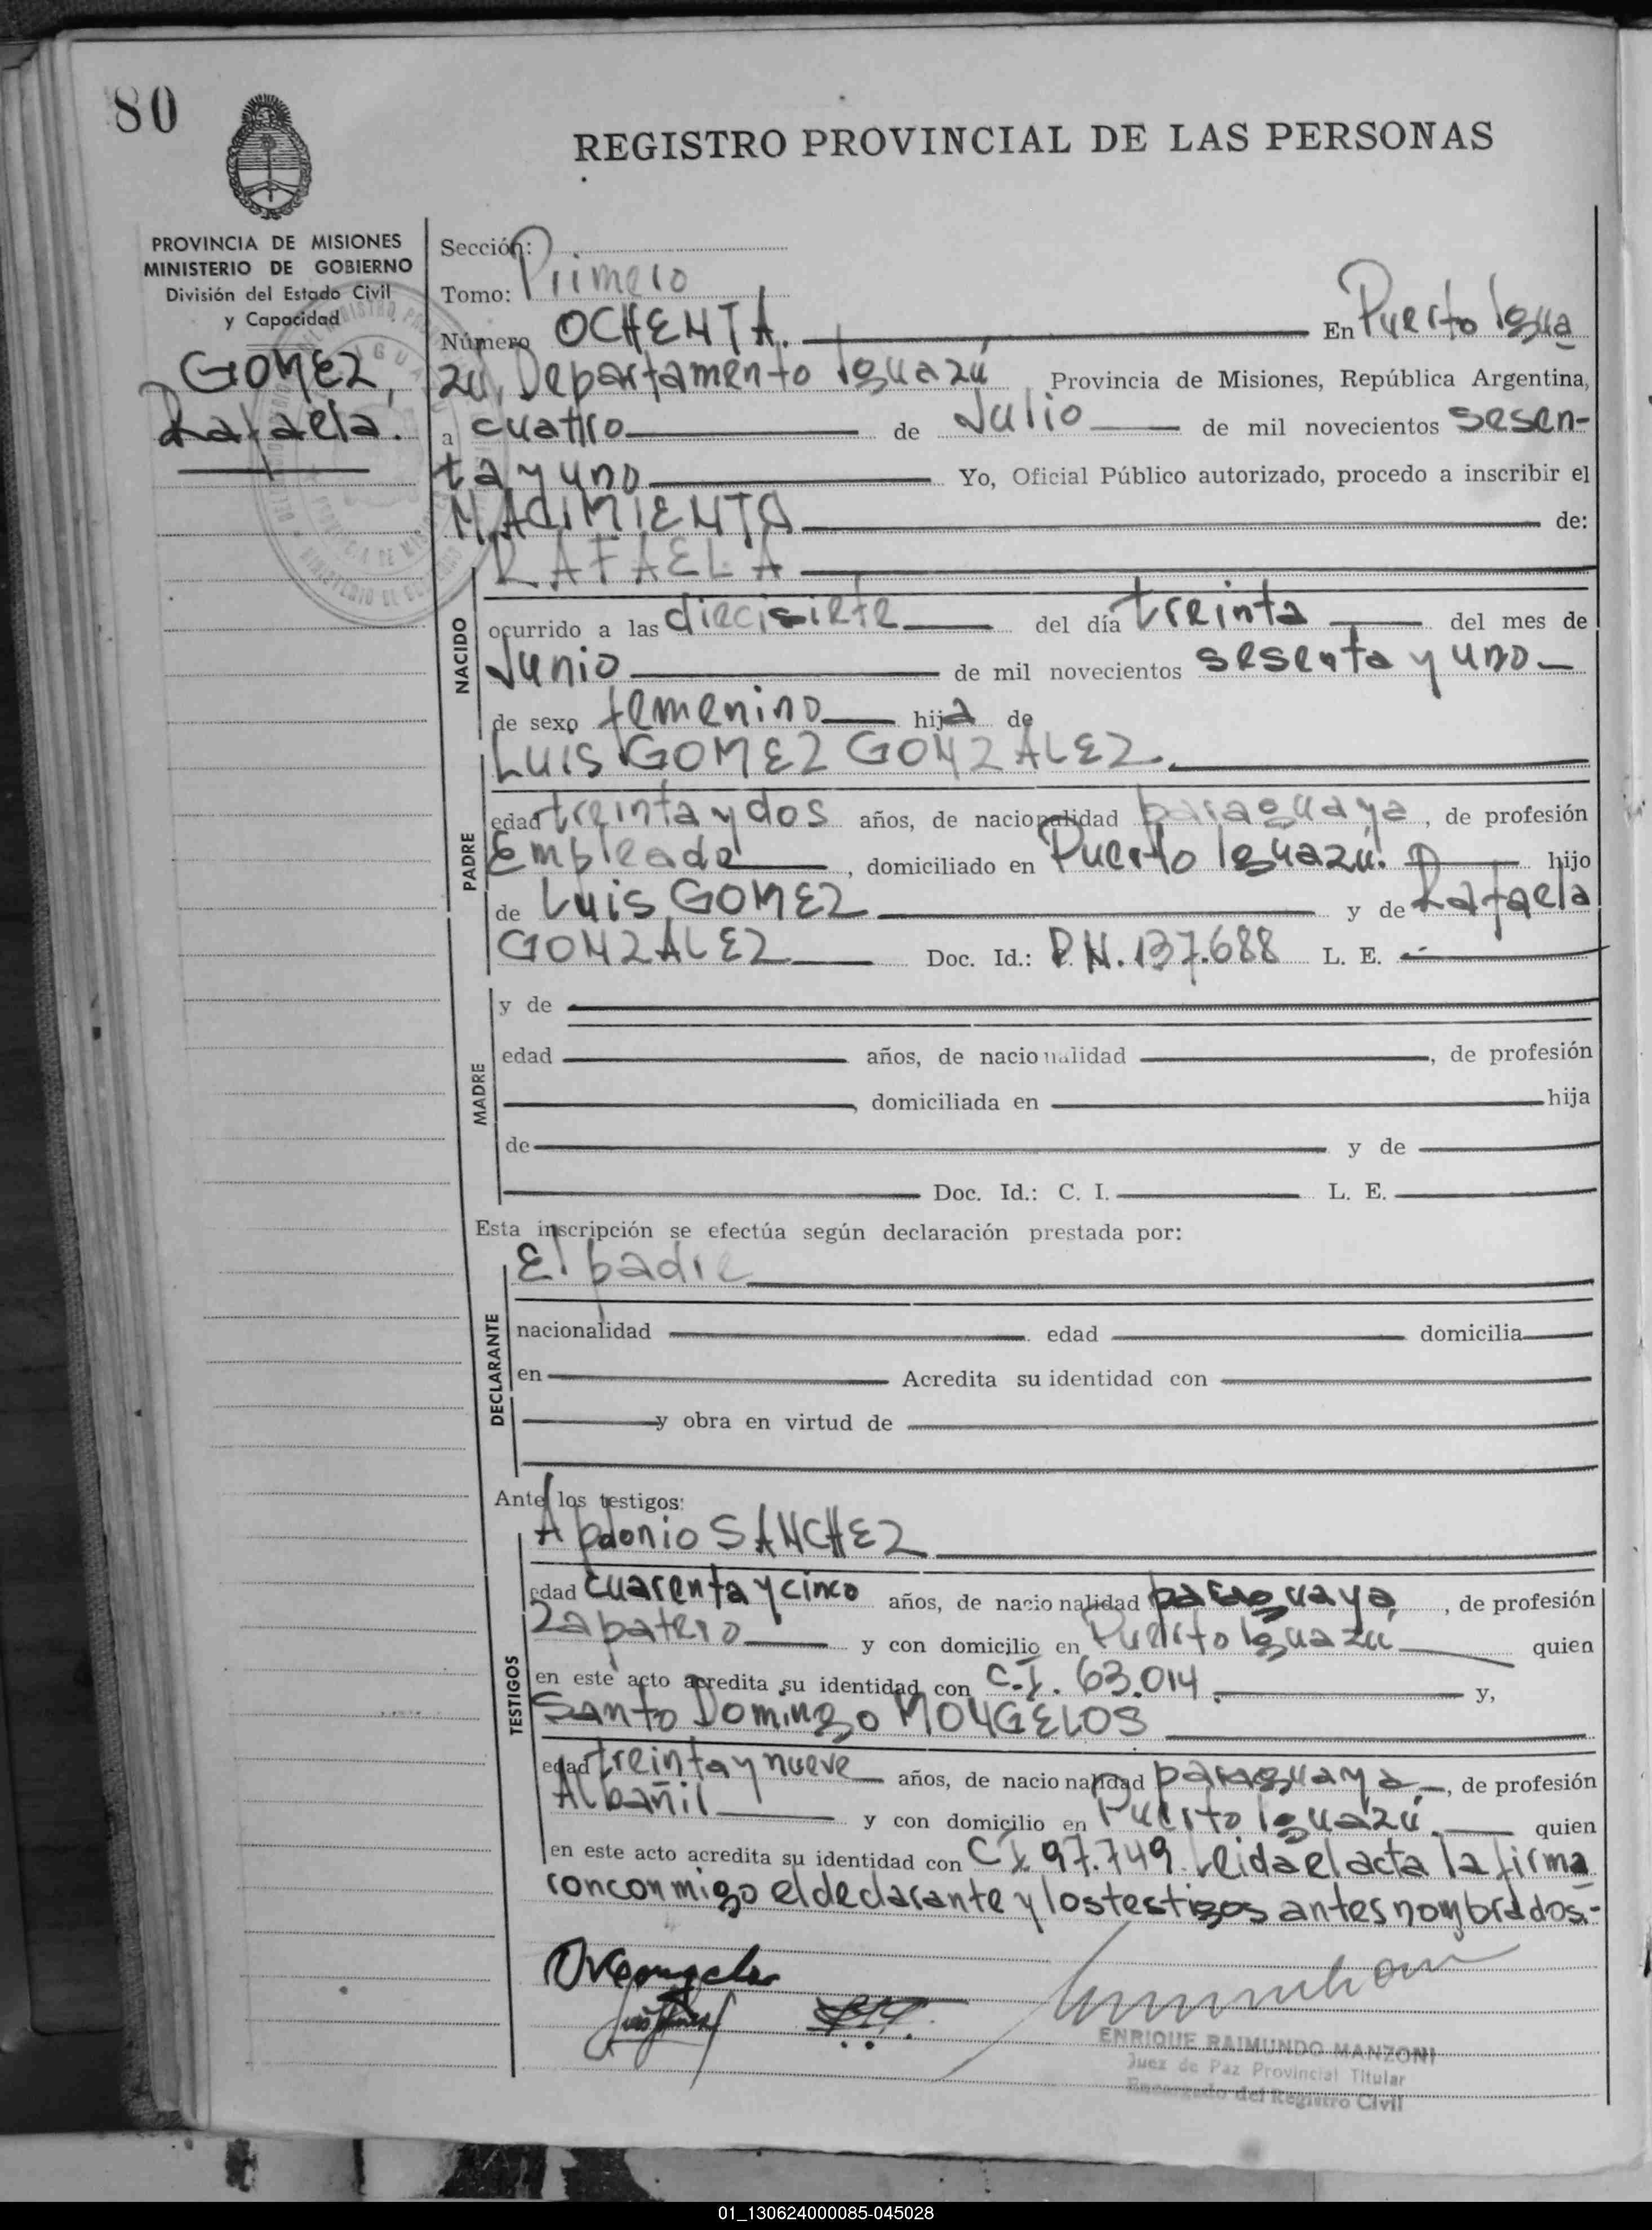 80
REGISTRO PROVINCIAL DE LAS PERSONAS
PROVINCIA DE MISIONES
MINISTERIO DE GOBIERNO
División del Estado Civil
y Capacidad
GOMEZ,
Rafaela.
Sección:
Tomo: Primero
Número OCHENTA. En Puerto Igua
zú, Departamento Iguazú Provincia de Misiones, República Argentina,
a cuatro de Julio de mil novecientos sesen-
ta y uno Yo, Oficial Público autorizado, procedo a inscribir el
NACIMIENTO de:
RAFAELA
NACIDO
ocurrido a las diecisiete del día treinta del mes de
Junio de mil novecientos sesenta y uno
de sexo femenino hija de
PADRE
LUIS GOMEZ GONZALEZ.
edad treinta y dos años, de nacionalidad paraguaya, de profesión
Empleado, domiciliado en Puerto Iguazú. hijo
de Luis GOMEZ y de Rafaela
GONZALEZ Doc. Id.: P.N. 137.688 L. E.
MADRE
y de
edad años, de nacionalidad , de profesión
, domiciliada en hija
de y de
Doc. Id.: C. I. L. E.
Esta inscripción se efectúa según declaración prestada por:
DECLARANTE
El padre
nacionalidad edad domicilia
en Acredita su identidad con
y obra en virtud de
Ante los testigos:
TESTIGOS
Apdonio SANCHEZ
edad cuarenta y cinco años, de nacionalidad paraguaya, de profesión
Zapatero y con domicilio en Puerto Iguazú quien
en este acto acredita su identidad con C.I. 63.014. y,
Santo Domingo MONGELOS
edad treinta y nueve años, de nacionalidad paraguaya, de profesión
Albañil y con domicilio en Puerto Iguazú. quien
en este acto acredita su identidad con C.I. 97.749. Leida el acta la firma
ron conmigo el declarante y los testigos antes nombrados.-
ENRIQUE RAIMUNDO MANZONI
Juez de Paz Provincial Titular
Encargado del Registro Civil
01_130624000085-045028